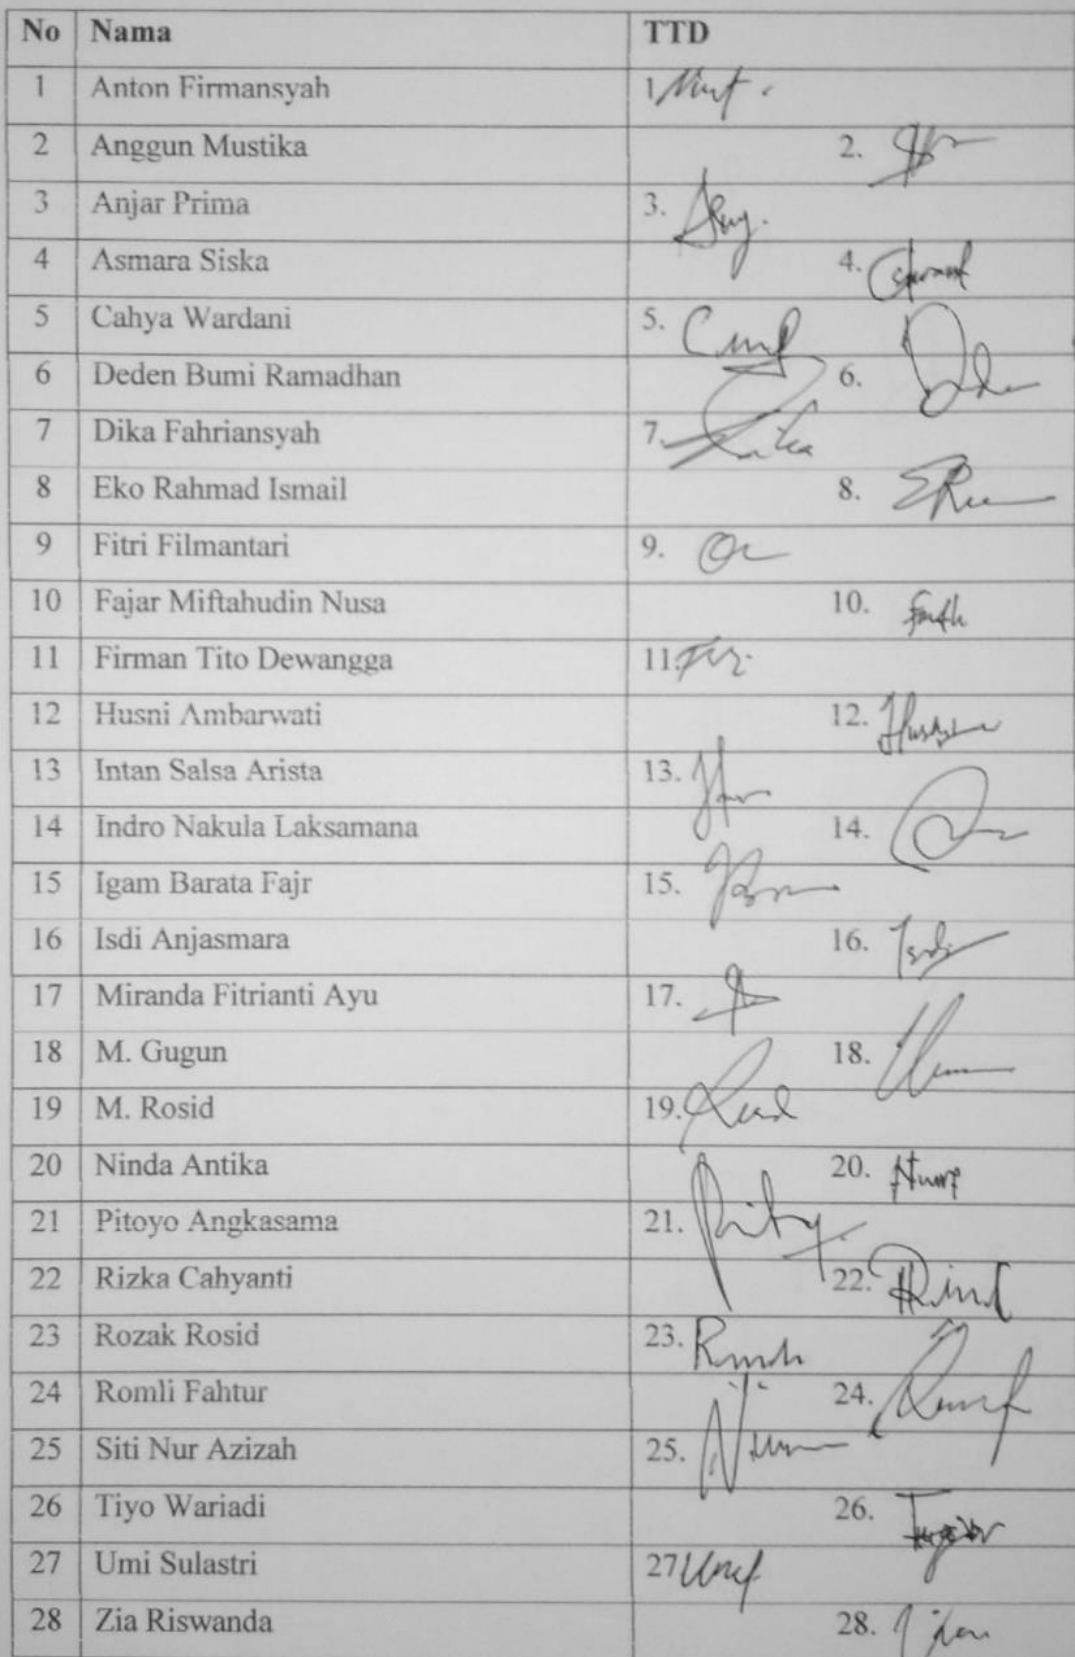 No Nama TTD
1 Anton Firmansyah 1
2 Anggun Mustika 2.
3 Anjar Prima 3.
4 Asmara Siska 4.
5 Cahya Wardani 5.
6 Deden Bumi Ramadhan 6.
7 Dika Fahriansyah 7.
8 Eko Rahmad Ismail 8.
9 Fitri Filmantari 9.
10 Fajar Miftahudin Nusa 10.
11 Firman Tito Dewangga 11.
12 Husni Ambarwati 12.
13 Intan Salsa Arista 13.
14 Indro Nakula Laksamana 14.
15 Igam Barata Fajr 15.
16 Isdi Anjasmara 16.
17 Miranda Fitrianti Ayu 17.
18 M. Gugun 18.
19 M. Rosid 19.
20 Ninda Antika 20.
21 Pitoyo Angkasama 21.
22 Rizka Cahyanti 22.
23 Rozak Rosid 23.
24 Romli Fahtur 24.
25 Siti Nur Azizah 25.
26 Tiyo Wariadi 26.
27 Umi Sulastri 27
28 Zia Riswanda 28.